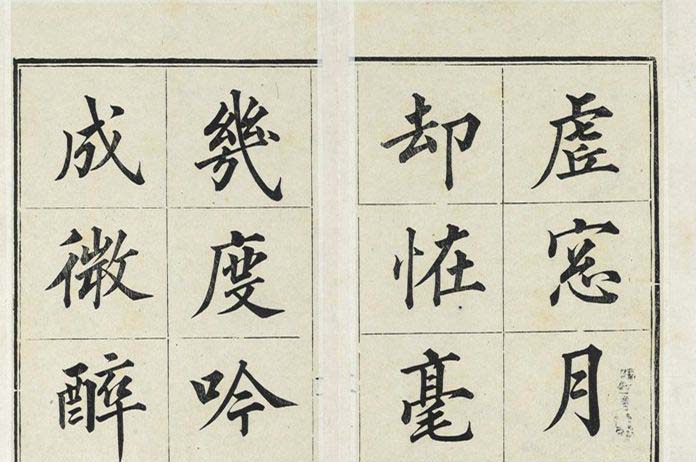 虗窓月
却恠毫
幾度吟
成微醉